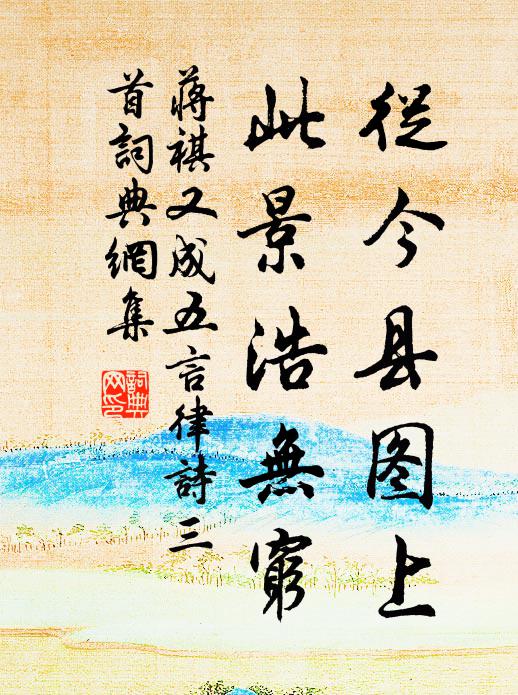 從今县图上
此景浩無窮
蒋祺又成五言律詩三
首詞典網集
詞典
网印